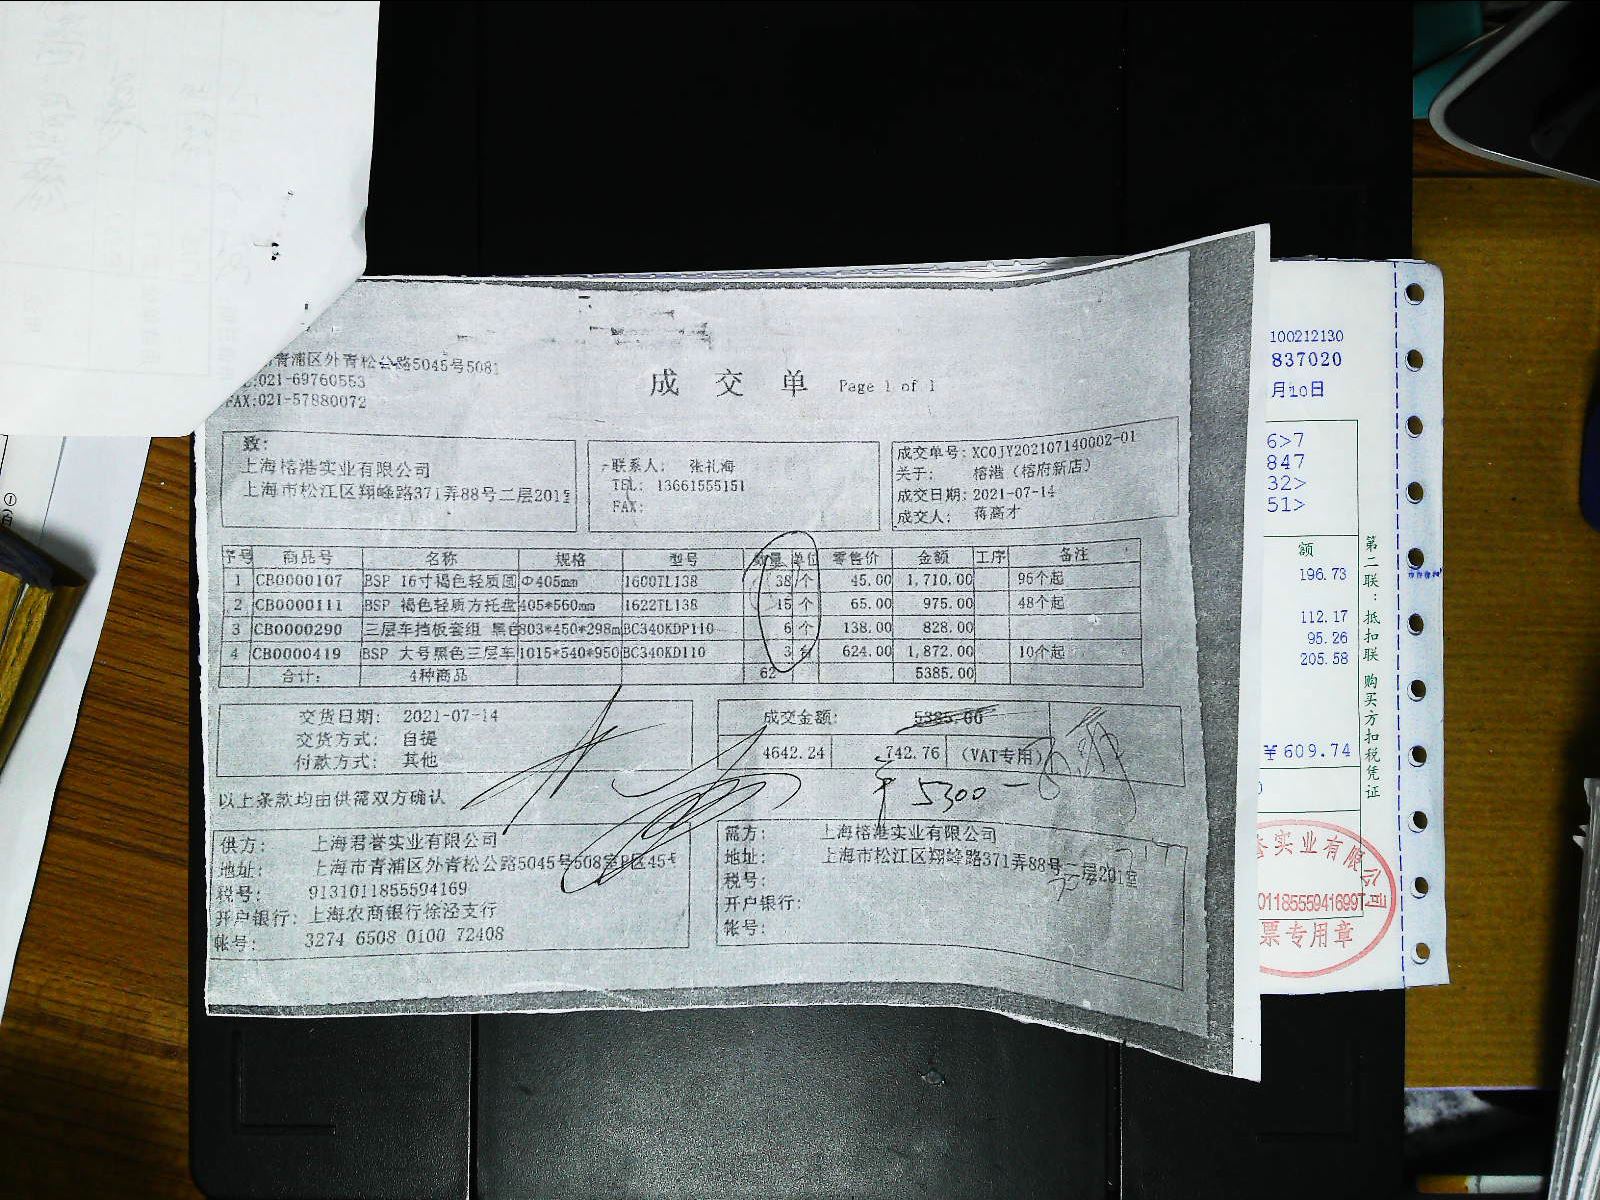 青浦区外青松公路5045号5081
:021-69760553
FAX:021-57880072
成 交 单 Page 1 of 1
致:
上海榕港实业有限公司
上海市松江区翔峰路371弄88号二层201室
联系人: 张礼海
TEL: 13661555151
FAX:
成交单号: XCOJY202107140002-01
关于: 榕港（榕府新店）
成交日期: 2021-07-14
成交人: 蒋高才
序号 商品号 名称 规格 型号 数量 单位 零售价 金额 工序 备注
1 CB0000107 BSP 16寸褐色轻质圆 Φ405mm 1600TL138 38 个 45.00 1,710.00 95个起
2 CB0000111 BSP 褐色轻质方托盘 405*560mm 1622TL138 15 个 65.00 975.00 48个起
3 CB0000290 三层车挡板套组 黑色 803*450*298m BC340KDP110 6 个 138.00 828.00
4 CB0000419 BSP 大号黑色三层车 1015*540*950 BC340KD110 3 台 624.00 1,872.00 10个起
合计: 4种商品 62 5385.00
交货日期: 2021-07-14
交货方式: 自提
付款方式: 其他
成交金额: 5385.00
4642.24 742.76 (VAT专用)
¥5300-
以上条款均由供需双方确认
供方: 上海君誉实业有限公司
地址: 上海市青浦区外青松公路5045号508室P区45号
税号: 9131011855594169
开户银行: 上海农商银行徐泾支行
帐号: 3274 6508 0100 72408
需方: 上海榕港实业有限公司
地址: 上海市松江区翔峰路371弄88号二层201室
税号:
开户银行:
帐号:
100212130
837020
月10日
6>7
847
32>
51>
额
196.73
112.17
95.26
205.58
¥609.74
第二联：抵扣联 购买方扣税凭证
实业有限公司
01185559416997
票专用章